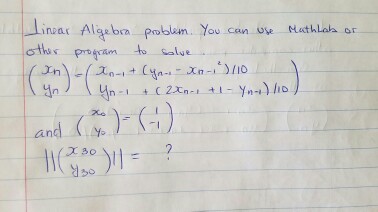 Linear Algebra problem. You can use Mathlab or
other program to solve.
(xn yn) = (xn-1 + (yn-1 - xn-1²)/10
yn-1 + (2xn-1 + 1 - yn-1)/10)
and (x0 y0) = (1 -1)
||(x30 y30)|| = ?